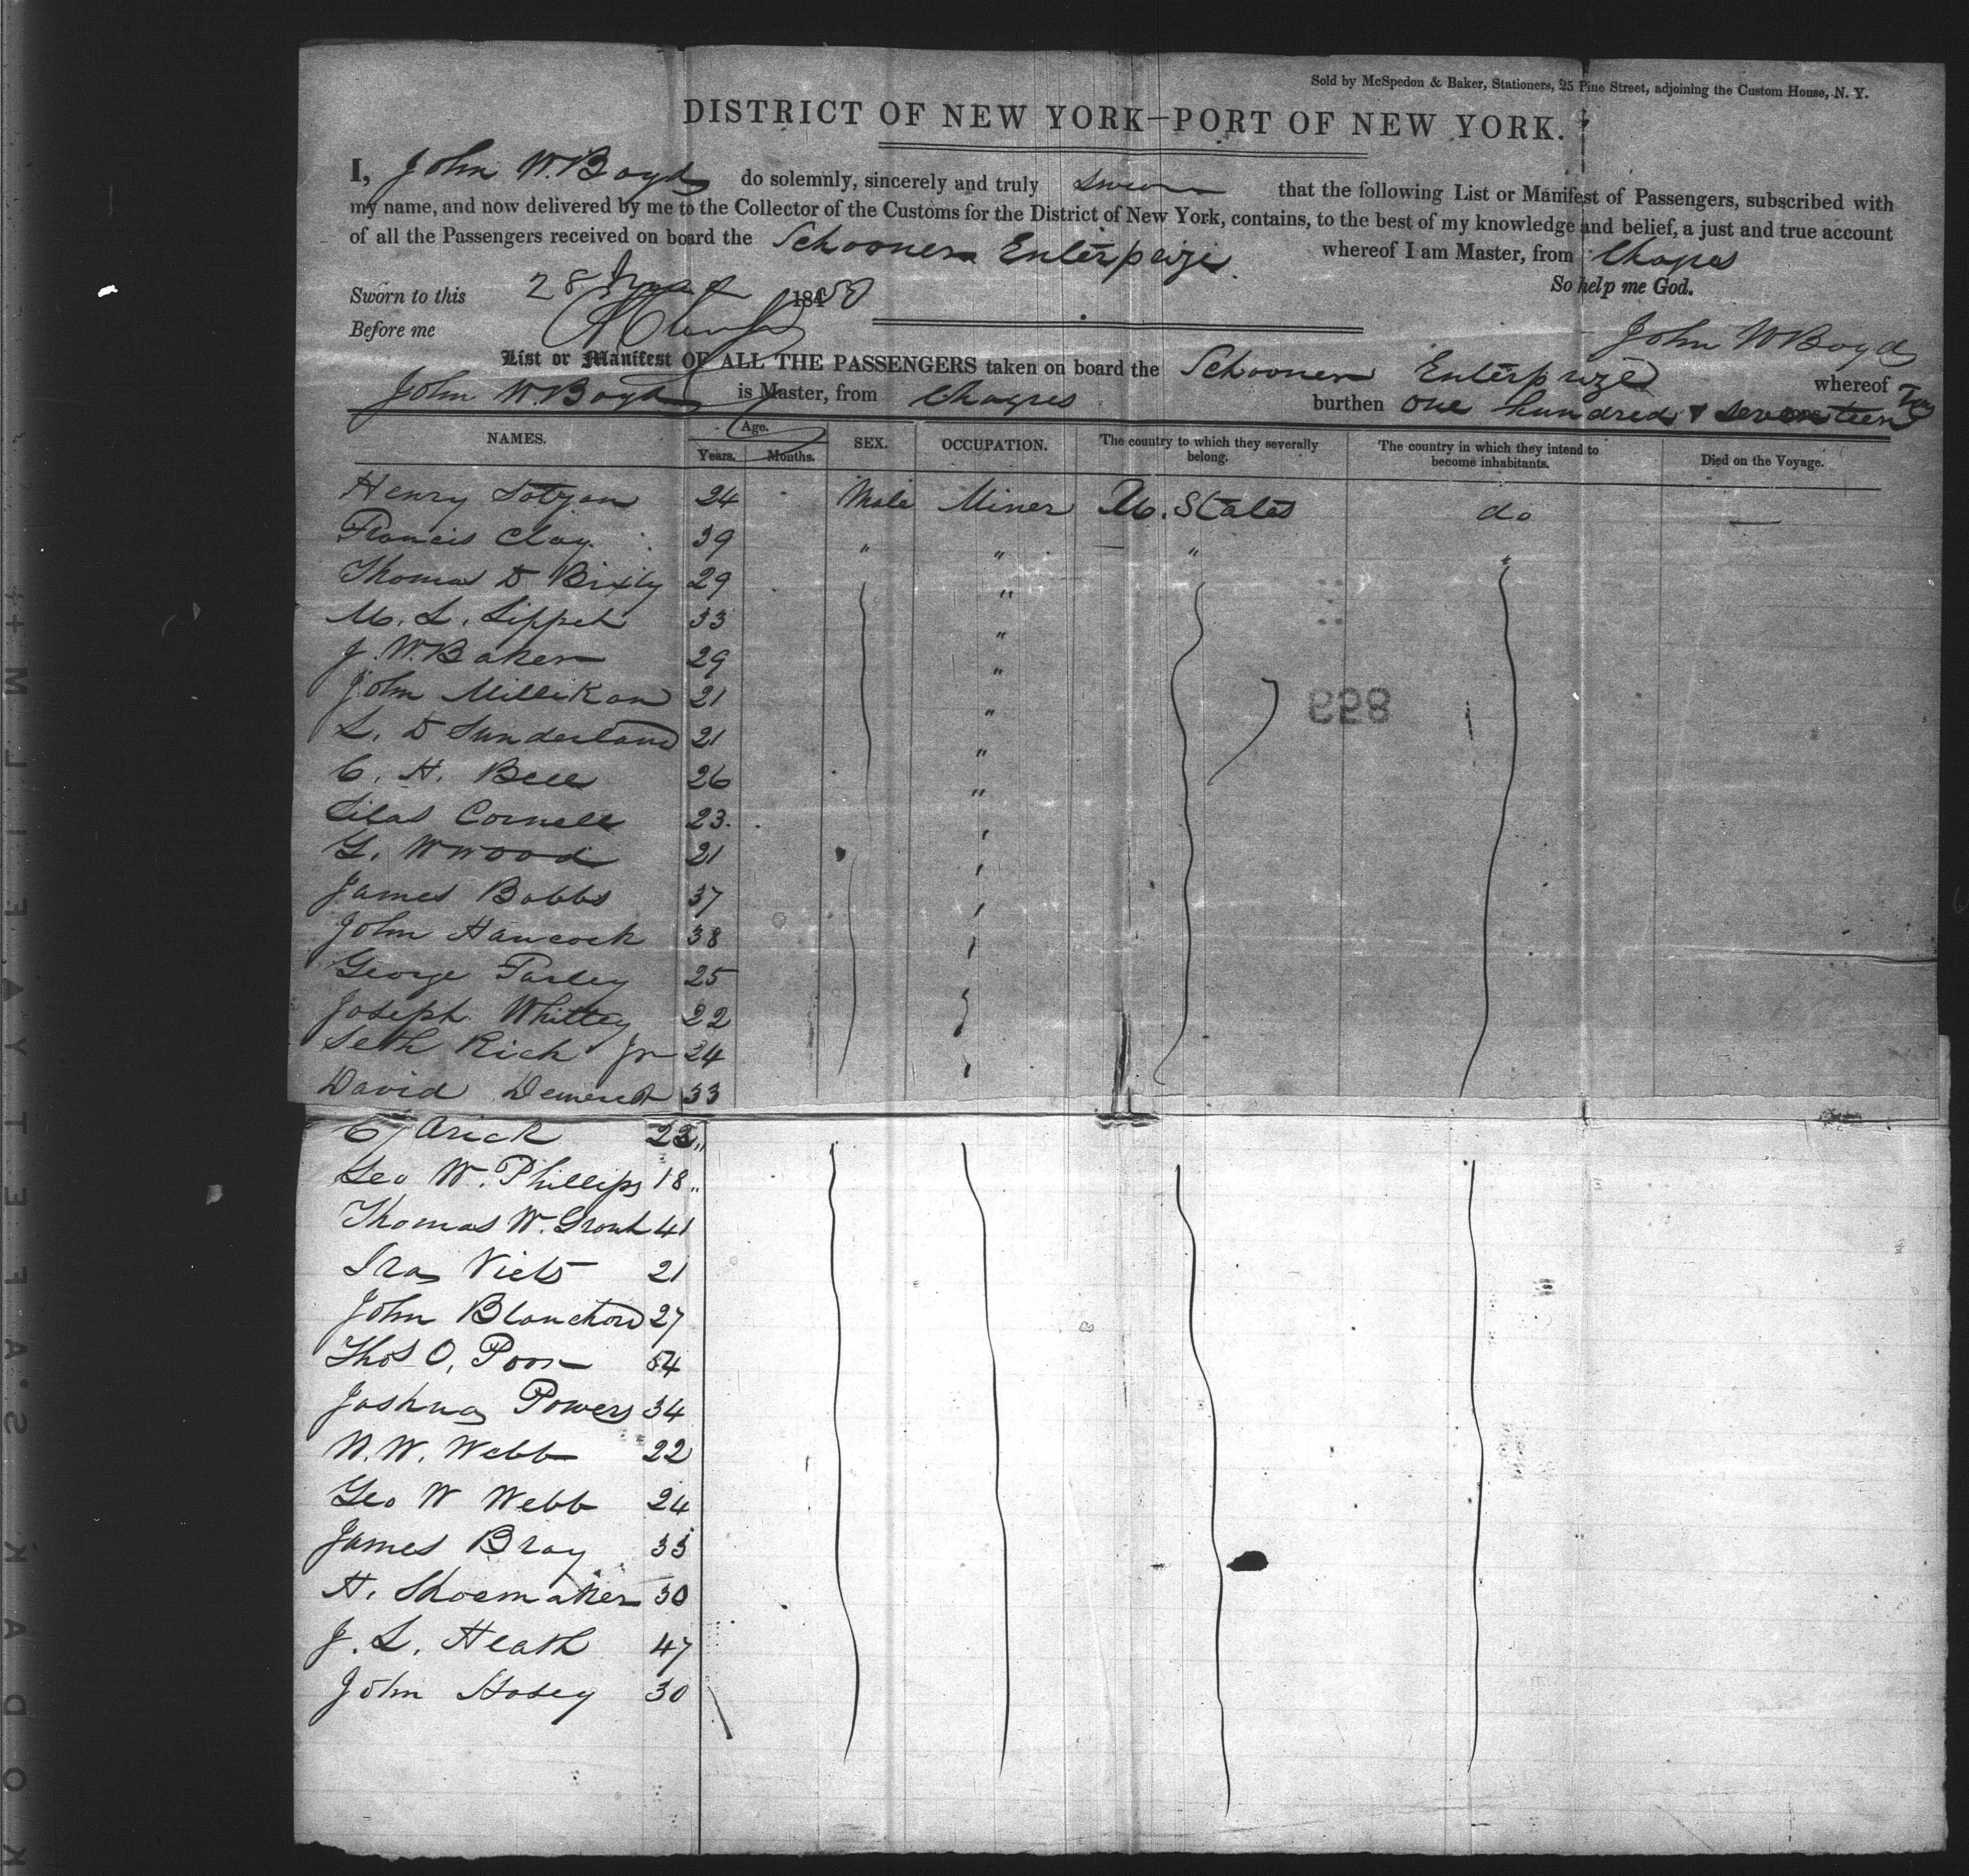 Sold by McSpedon & Baker, Stationers, 25 Pine Street, adjoining the Custom House, N. Y.
DISTRICT OF NEW YORK—PORT OF NEW YORK.
I, John W. Boyd do solemnly, sincerely and truly swear that the following List or Manifest of Passengers, subscribed with
my name, and now delivered by me to the Collector of the Customs for the District of New York, contains, to the best of my knowledge and belief, a just and true account
of all the Passengers received on board the Schooner Enterprize whereof I am Master, from Chagres
So help me God.
Sworn to this 28 1850
Before me
John W Boyd
List or Manifest OF ALL THE PASSENGERS taken on board the Schooner Enterprize whereof
John W. Boyd is Master, from Chagres burthen one hundred & seventeen Tons
NAMES. Age. Years. Months. SEX. OCCUPATION. The country to which they severally belong. The country in which they intend to become inhabitants. Died on the Voyage.
Henry 24 Male Miner U. States do —
Francis Clay 39 " " " "
Thomas D Bixly 29 "
M. L. Lippet 33 "
J. W. Baker 29 "
John Millikan 21 "
L. D Sunderland 21 "
C. H. Bell 26 "
Silas Cornell 23
G. W Wood 21
James Bobbs 37
John Hancock 38
George Farley 25
Joseph Whittey 22
Seth Rich Jr 24
David Demerit 33
Arick 22 "
Geo W. Phillips 18 "
Thomas W. 41
Ira Viets 21
John Blanchard 27
Thos O. Poor 54
Joshua Powers 34
N. W. Webb 22
Geo W Webb 24
James Bray 33
H. Shoemaker 30
J. L. Heath 47
John Hosey 30